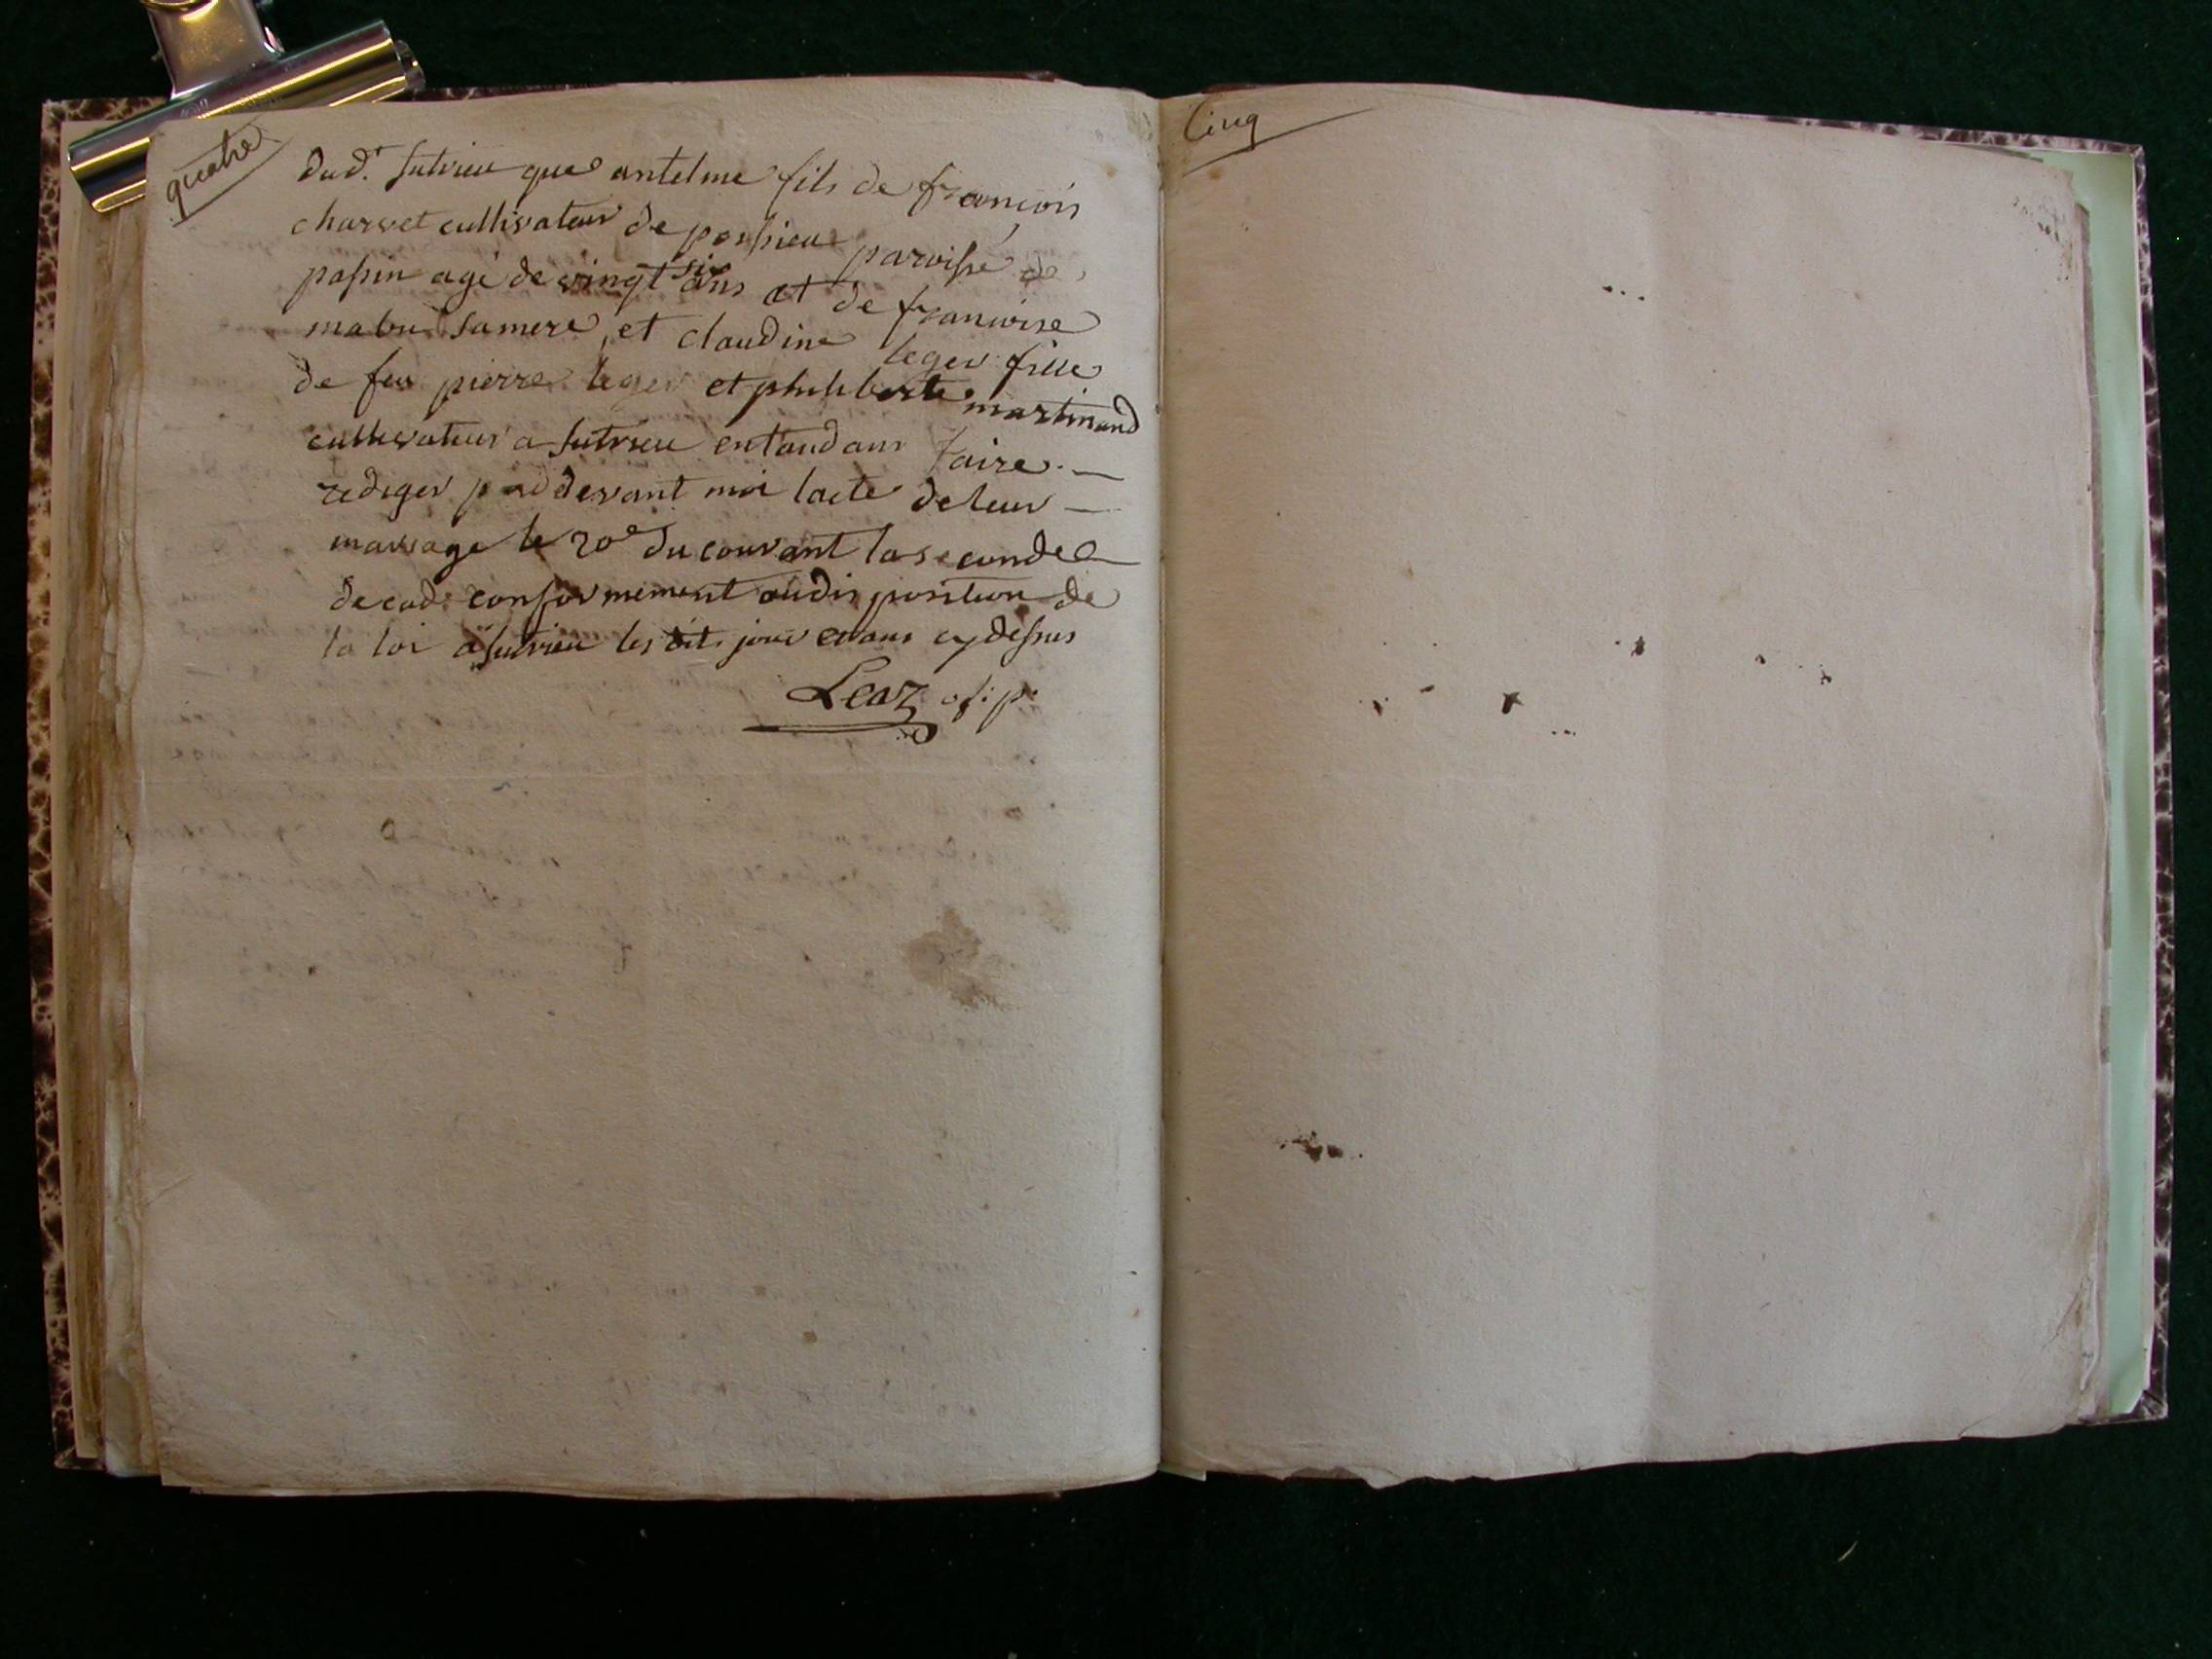 quatre
dud.t sutrieu que antelme fils de francois
charvet cultivateur de possieu paroisse de
passin agé de vingt six ans et de francoise
mabu sa mere, et claudine leger fille
de feu pierre leger et philiberte martinand
cultivateur a sutrieu entandans faire
rediger par devant moi lacte de leur
mariage le 20e du couvant la seconde
decad conformement au disposition de
la loi a sutrieu les dits jour et ans cy dessus
Leaz of: p:
Cinq